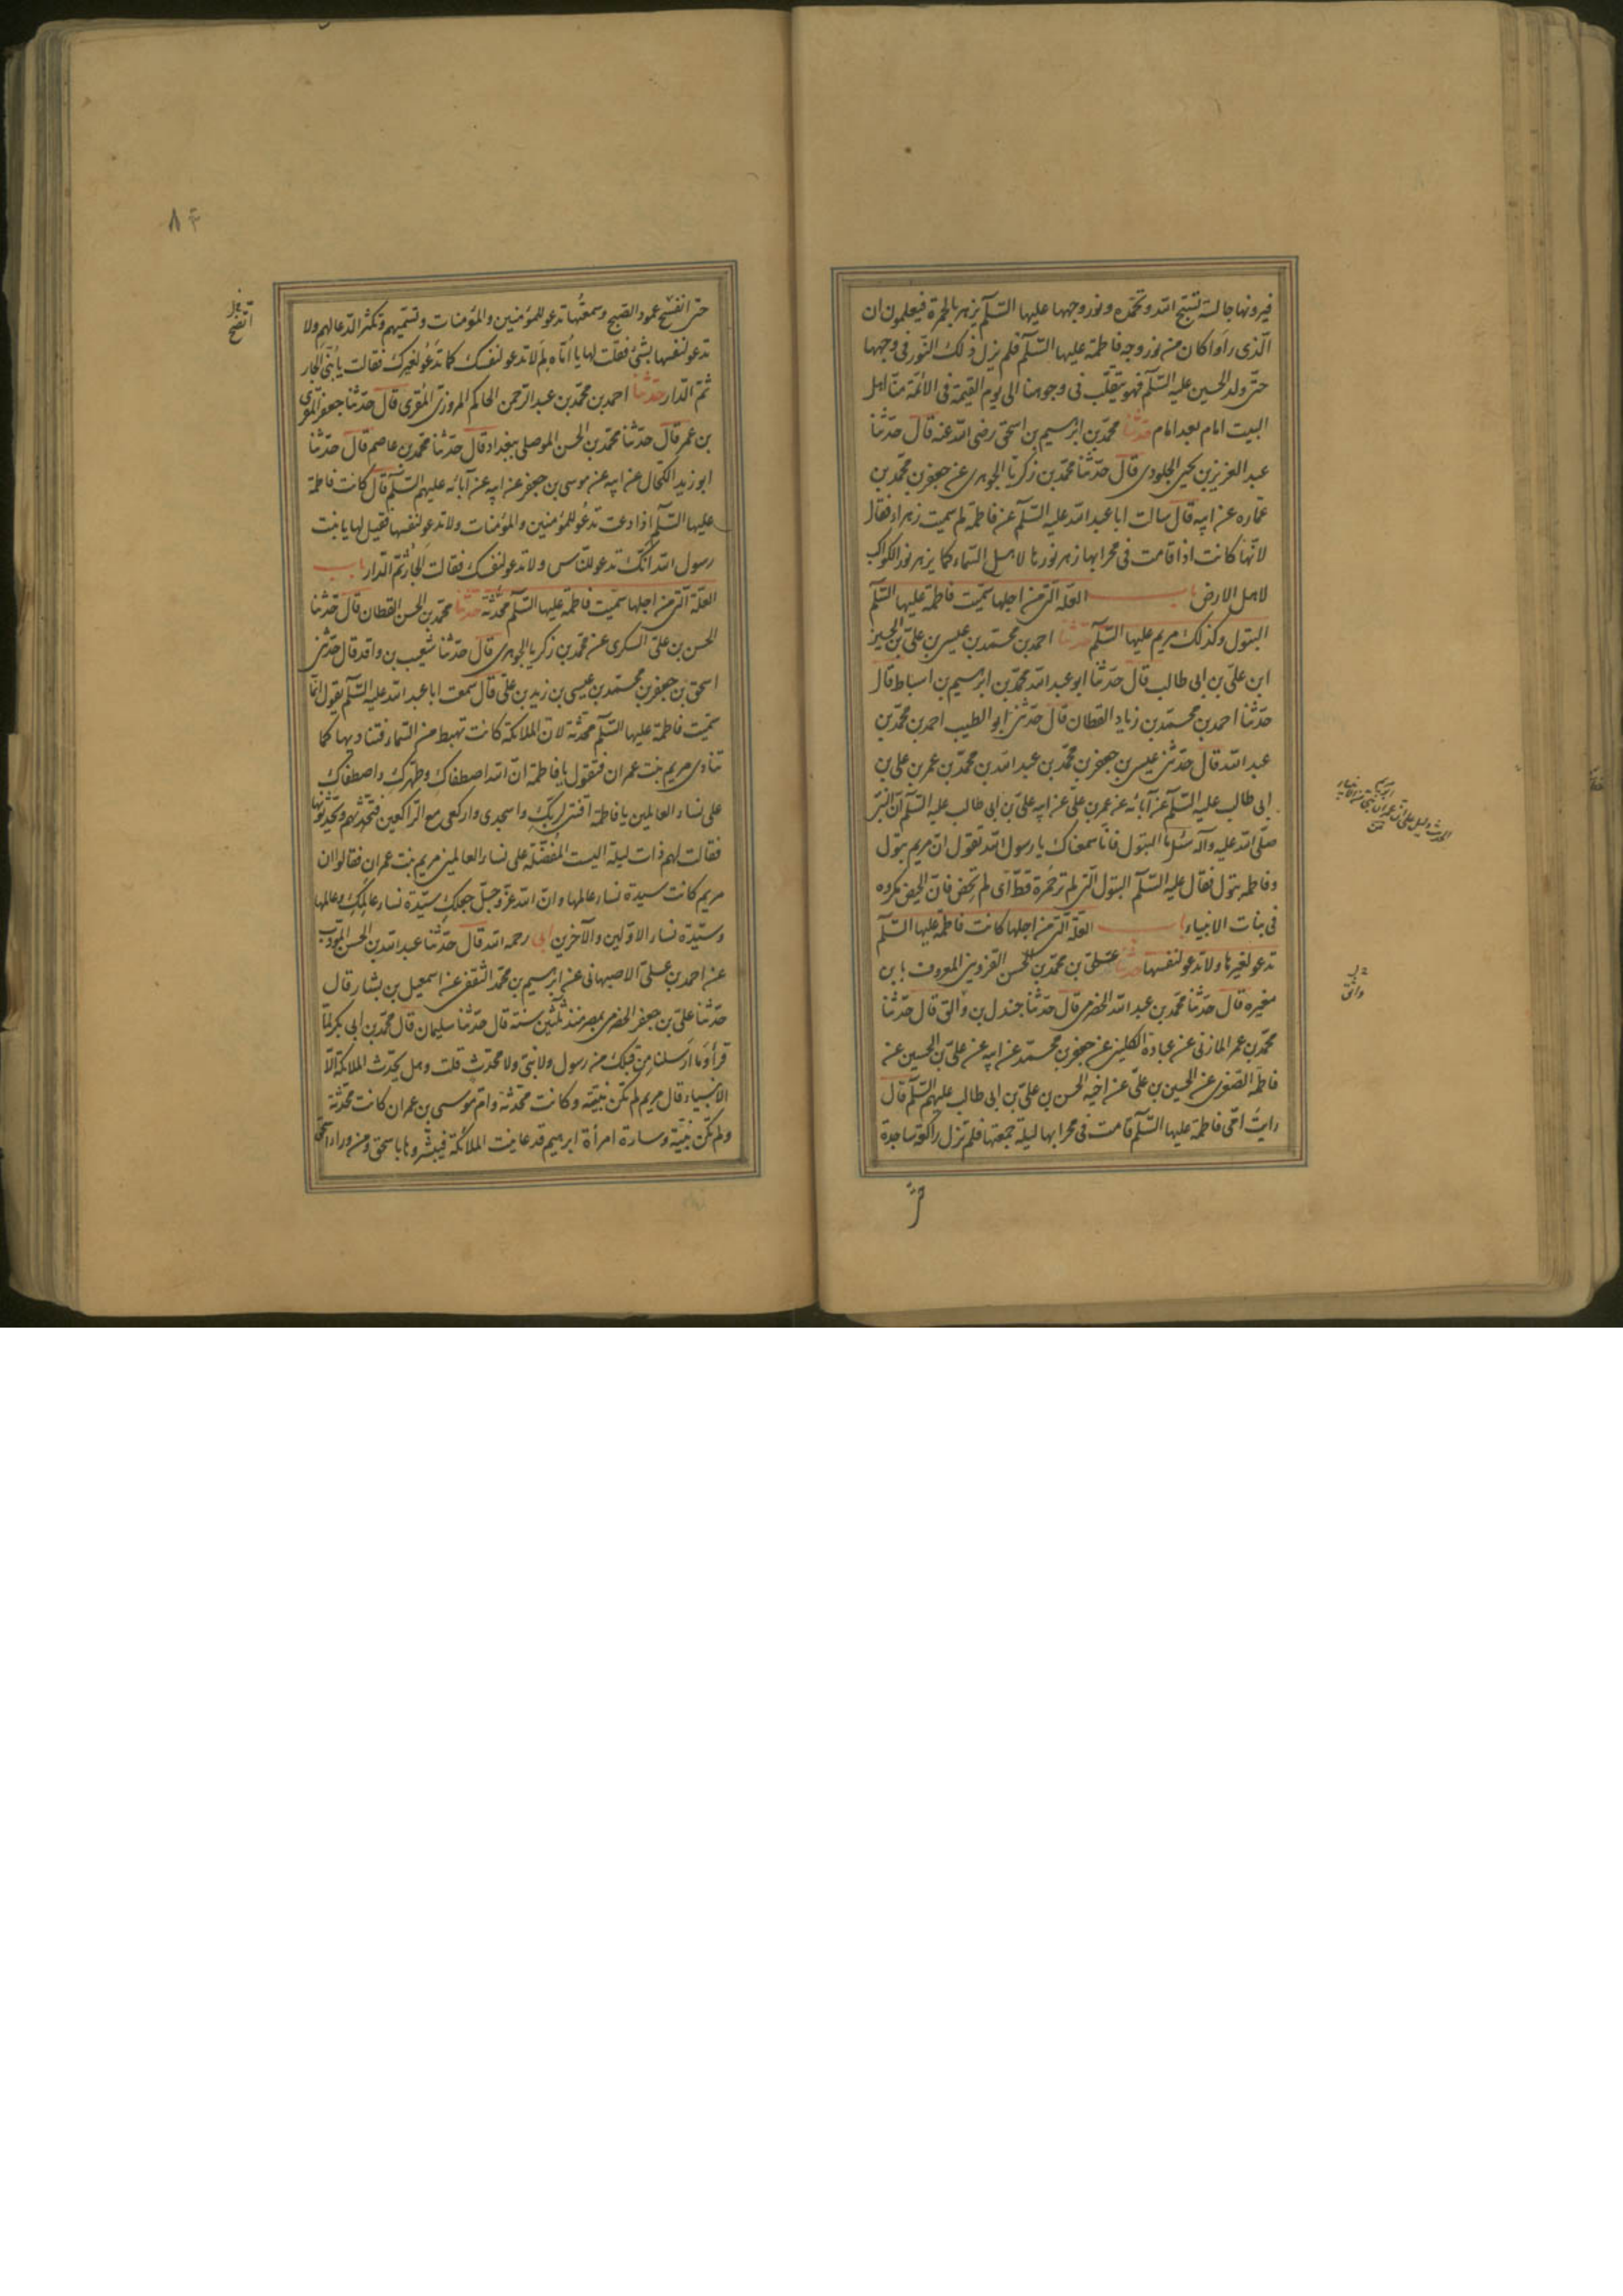 فيرونها جالسة تسبح الله وتحمده ونور وجهها عليها السلم يزهر بالحمرة فيعلمون ان
الذى راوا كان من نور وجه فاطمة عليها السلم فلم يزل ذلك النور فى وجهها
حتى ولد الحسين عليه السلم فهو يتقلب فى وجوهنا الى يوم القيمة فى الائمة منا اهل
البيت امام بعد امام حدثنا محمد بن ابرهيم بن اسحق رضى الله عنه قال حدثنا
عبد العزيز بن يحيى الجلودى قال حدثنا محمد بن زكريا الجوهرى عن جعفر بن محمد بن
عماره عن ابيه قال سالت ابا عبد الله عليه السلم عن فاطمة لم سميت زهراء فقال
لانها كانت اذا قامت فى محرابها زهر نورها لاهل السماء كما يزهر نور الكواكب
لاهل الارض باب العلة التى من اجلها سميت فاطمة عليها السلم
البتول وكذلك مريم عليها السلم حدثنا احمد بن محمد بن عيسى بن على بن الحسين
ابن على بن ابى طالب قال حدثنا ابو عبد الله محمد بن ابرهيم بن اسباط قال
حدثنا احمد بن محمد بن زياد القطان قال حدثنى ابو الطيب احمد بن محمد بن
عبد الله قال حدثنى عيسى بن جعفر بن محمد بن عبد الله بن محمد بن عمر بن على بن
ابى طالب عليه السلم عن آبائه عن عمر بن على عن ابيه على بن ابى طالب عليه السلم ان النبى
صلى الله عليه وآله سئل ما البتول فانا سمعناك يا رسول الله تقول ان مريم بتول
وفاطمة بتول فقال عليه السلم البتول التى لم تر حمرة قط اى لم تحض فان الحيض مكروه
فى بنات الانبياء باب العلة التى من اجلها كانت فاطمة عليها السلم
تدعو لغيرها ولا تدعو لنفسها حدثنا على بن محمد بن الحسن القزوينى المعروف بابن
مغيره قال حدثنا محمد بن عبد الله الحضرمى قال حدثنا جندل بن والق قال حدثنا
محمد بن عمر المازنى عن عبادة الكليبى عن جعفر بن محمد عن ابيه عن على بن الحسين عن
فاطمة الصغرى عن الحسين بن على عن اخيه الحسن بن على بن ابى طالب عليهم السلم قال
رايت امى فاطمة عليها السلم قامت فى محرابها ليلة جمعتها فلم تزل راكعة ساجدة
واثق
حتى
٨٤
حتى انفسح عمود الصبح وسمعتها تدعو للمؤمنين والمؤمنات وتسميهم وتكثر الدعا لهم ولا
تدعو لنفسها بشئ فقلت لها يا اماه لم لا تدعو لنفسك كما تدعو لغيرك فقالت يا بنى الجار
ثم الدار حدثنا احمد بن محمد بن عبد الرحمن الحاكم المروزى المقرى قال حدثنا جعفر المقرى
بن عمر قال حدثنا محمد بن الحسن الموصلى ببغداد قال حدثنا محمد بن عاصم قال حدثنا
ابو زيد الكحال عن ابيه عن موسى بن جعفر عن ابيه عن آبائه عليهم السلم قال كانت فاطمة
عليها السلم اذا دعت تدعو للمؤمنين والمؤمنات ولا تدعو لنفسها فقيل لها يا بنت
رسول الله انك تدعو للناس ولا تدعو لنفسك فقالت الجار ثم الدار باب
العلة التى من اجلها سميت فاطمة عليها السلم محدثة حدثنا محمد بن الحسن القطان قال حدثنا
الحسن بن على السكرى عن محمد بن زكريا الجوهرى قال حدثنا شعيب بن واقد قال حدثنى
اسحق بن جعفر بن محمد بن عيسى بن زيد بن على قال سمعت ابا عبد الله عليه السلم يقول انما
سميت فاطمة عليها السلم محدثة لان الملائكة كانت تهبط من السماء فتناديها كما
تنادى مريم بنت عمران فتقول يا فاطمة ان الله اصطفاك وطهرك واصطفاك
على نساء العالمين يا فاطمة اقنتى لربك واسجدى واركعى مع الراكعين فتحدثهم ويحدثونها
فقالت لهم ذات ليلة اليست المفضلة على نساء العالمين مريم بنت عمران فقالوا ان
مريم كانت سيدة نساء عالمها وان الله عز وجل جعلك سيدة نساء عالمك وعالمها
وسيدة نساء الاولين والآخرين ابى رحمه الله قال حدثنا عبد الله بن الحسن المؤدب
عن احمد بن على الاصبهانى عن ابرهيم بن محمد الثقفى عن اسمعيل بن بشار قال
حدثنا على بن جعفر الحضرمى بمصر منذ ثلثين سنة قال حدثنا سليمان قال محمد بن ابى بكر لما
قرأ وما ارسلنا من قبلك من رسول ولا نبى ولا محدث قلت وهل يحدث الملائكة الا
الانبياء قال مريم لم تكن نبية وكانت محدثة وام موسى بن عمران كانت محدثة
ولم تكن نبية وسارة امرأة ابرهيم قد عاينت الملائكة فبشروها باسحق ومن وراء اسحق